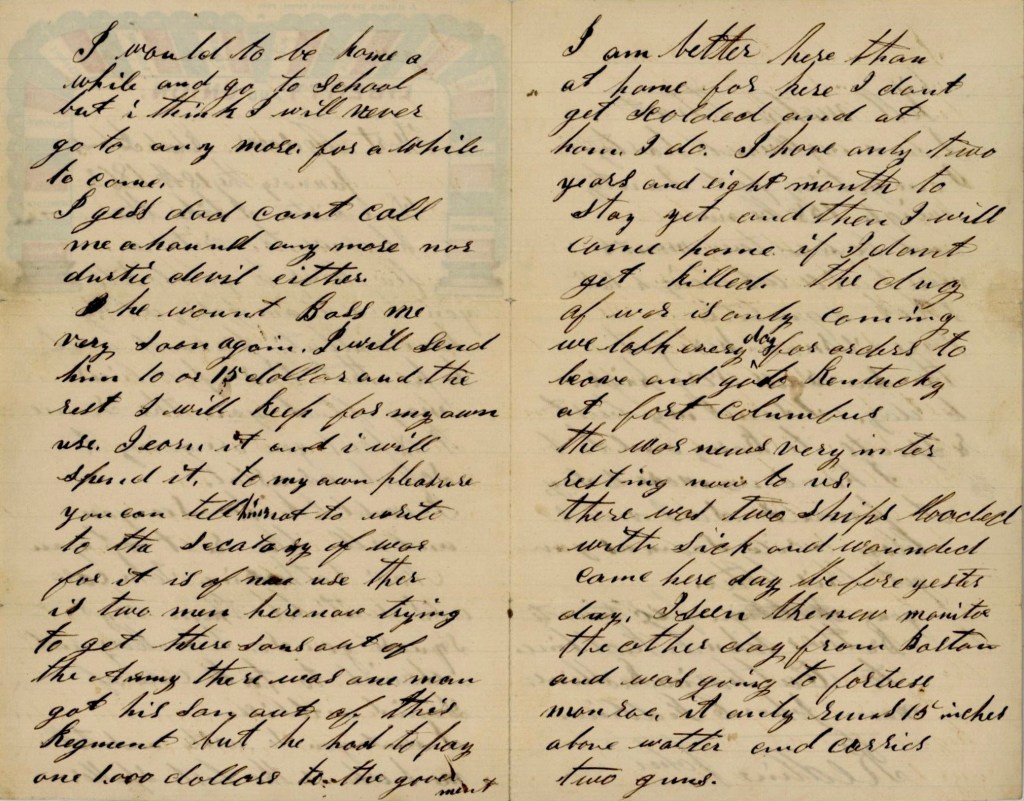 I would to be home a
while and go to School
but i think I will never
go to any more. for a while
to come.
I gess dad cant call
me a hound any more nor
durtie devil either.
he wount Boss me
very soon again. I will Send
him 10 or 15 dollar and the
rest I will keep for my own
use. I earn it and i will
spend it. to my own pleasure
you can tell him not to write
to the Secatary of war
for it is of use ther
is two men here now trying
to get there sons out of
the Army there was one man
got his son out of this
Regment but he had to pay
one 1.000 dollars to the government
I am better here than
at home for here I dont
get Scolded and at
home I do. I have only two
years and eight month to
stay yet and then I will
come home if I dont
get killed. the dug
of war is only coming
we look every day for orders to
leave and go to Kentucky
at fort Columbus
the war news very inter
resting now to us.
there was two Ships Loaded
with Sick and wounded
came here day be fore yester
day. I seen the new monitor
the other day from Boston
and was going to fortress
monroe. it only runs 15 inches
above watter and carries
two guns.